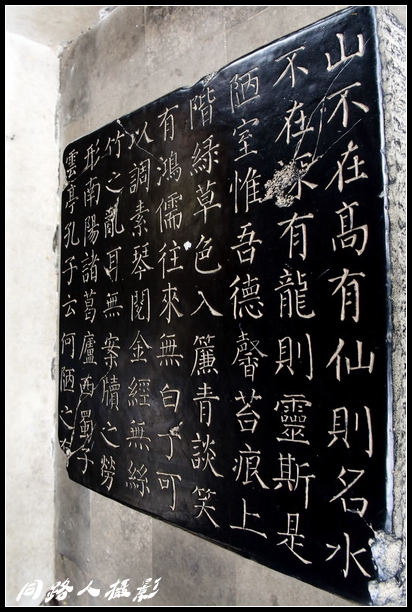 山不在高有仙則名水
不在深有龍則靈斯是
陋室惟吾德馨苔痕上
階綠草色入簾青談笑
有鴻儒往來無白丁可
以調素琴閱金經無絲
竹之亂耳無案牘之勞
形南陽諸葛廬西蜀子
雲亭孔子云何陋之有
同路人攝影